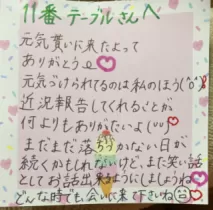 11番テーブルさんへ
元気貰いに来たよって
ありがとう
元気づけられてるのは私のほう(^o^)
近況報告してくれることが
何よりもありがたいよ(uu)
まだまだ落ち着かない日が
続くかもしれないけど、また笑い話
としてお話出来ますようにしましょうね
どんな時でも、会いに来て下さいね